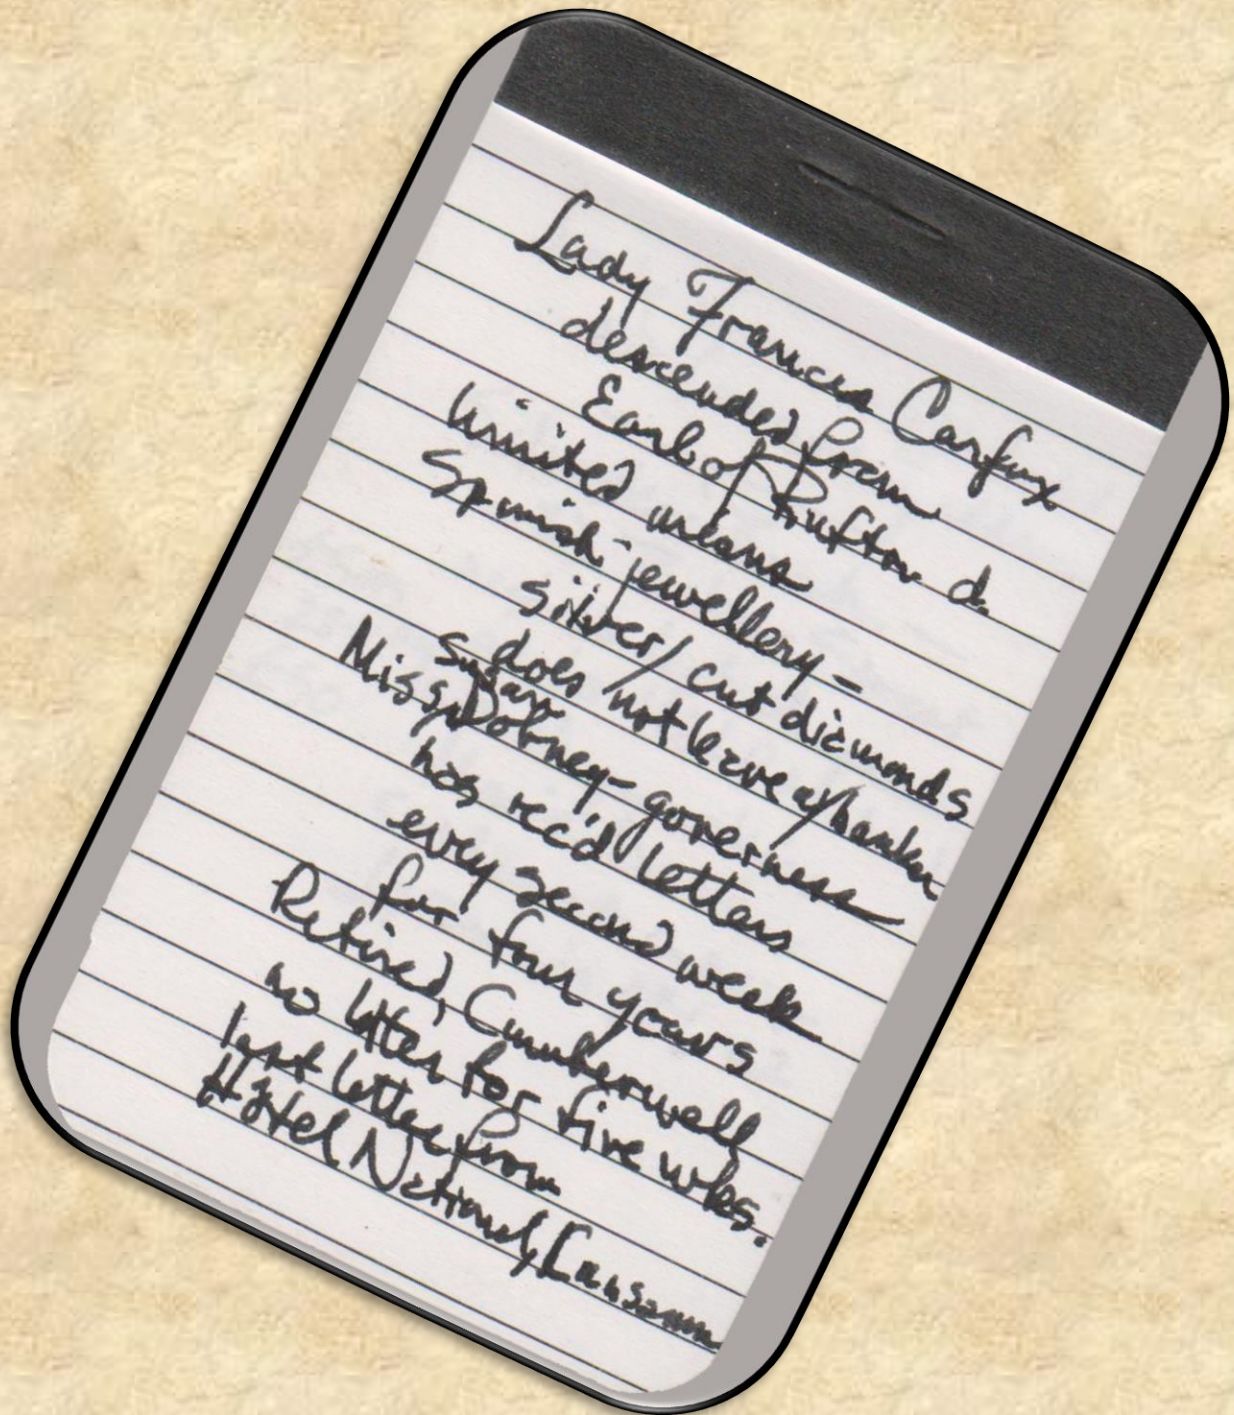 Lady Frances Carfax
descended from
Earl of Rufton d.
limited means
Spanish jewellery -
silver/cut diamonds
does not leave w/banker
Miss Susan Dobney - governess
has rec'd letters
every second week
for four years
Retired, Camberwell
no letter for five wks.
last letter from
Hôtel National, Lausanne